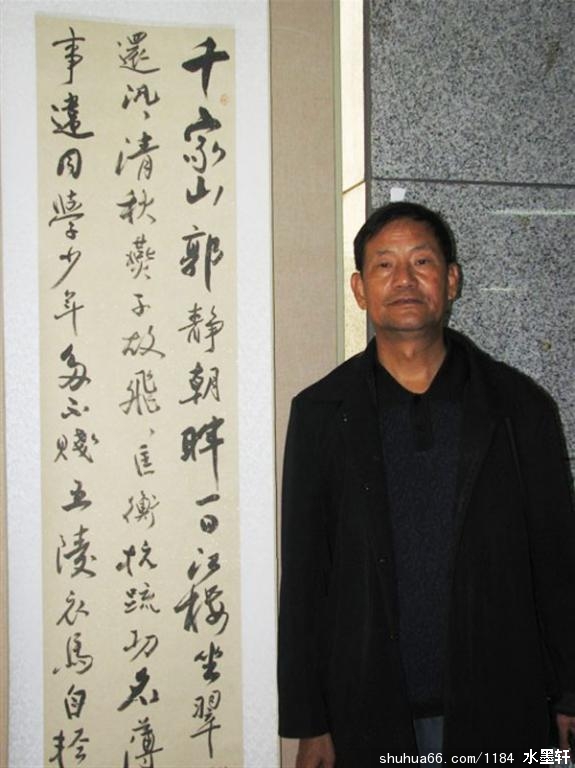 千家山郭靜朝暉一日江樓坐翠
還汎〻清秋燕子故飛〻匡衡抗疏功名薄
事違同學少年多不賤五陵衣馬自輕
shuhua66.com/1184 水墨轩